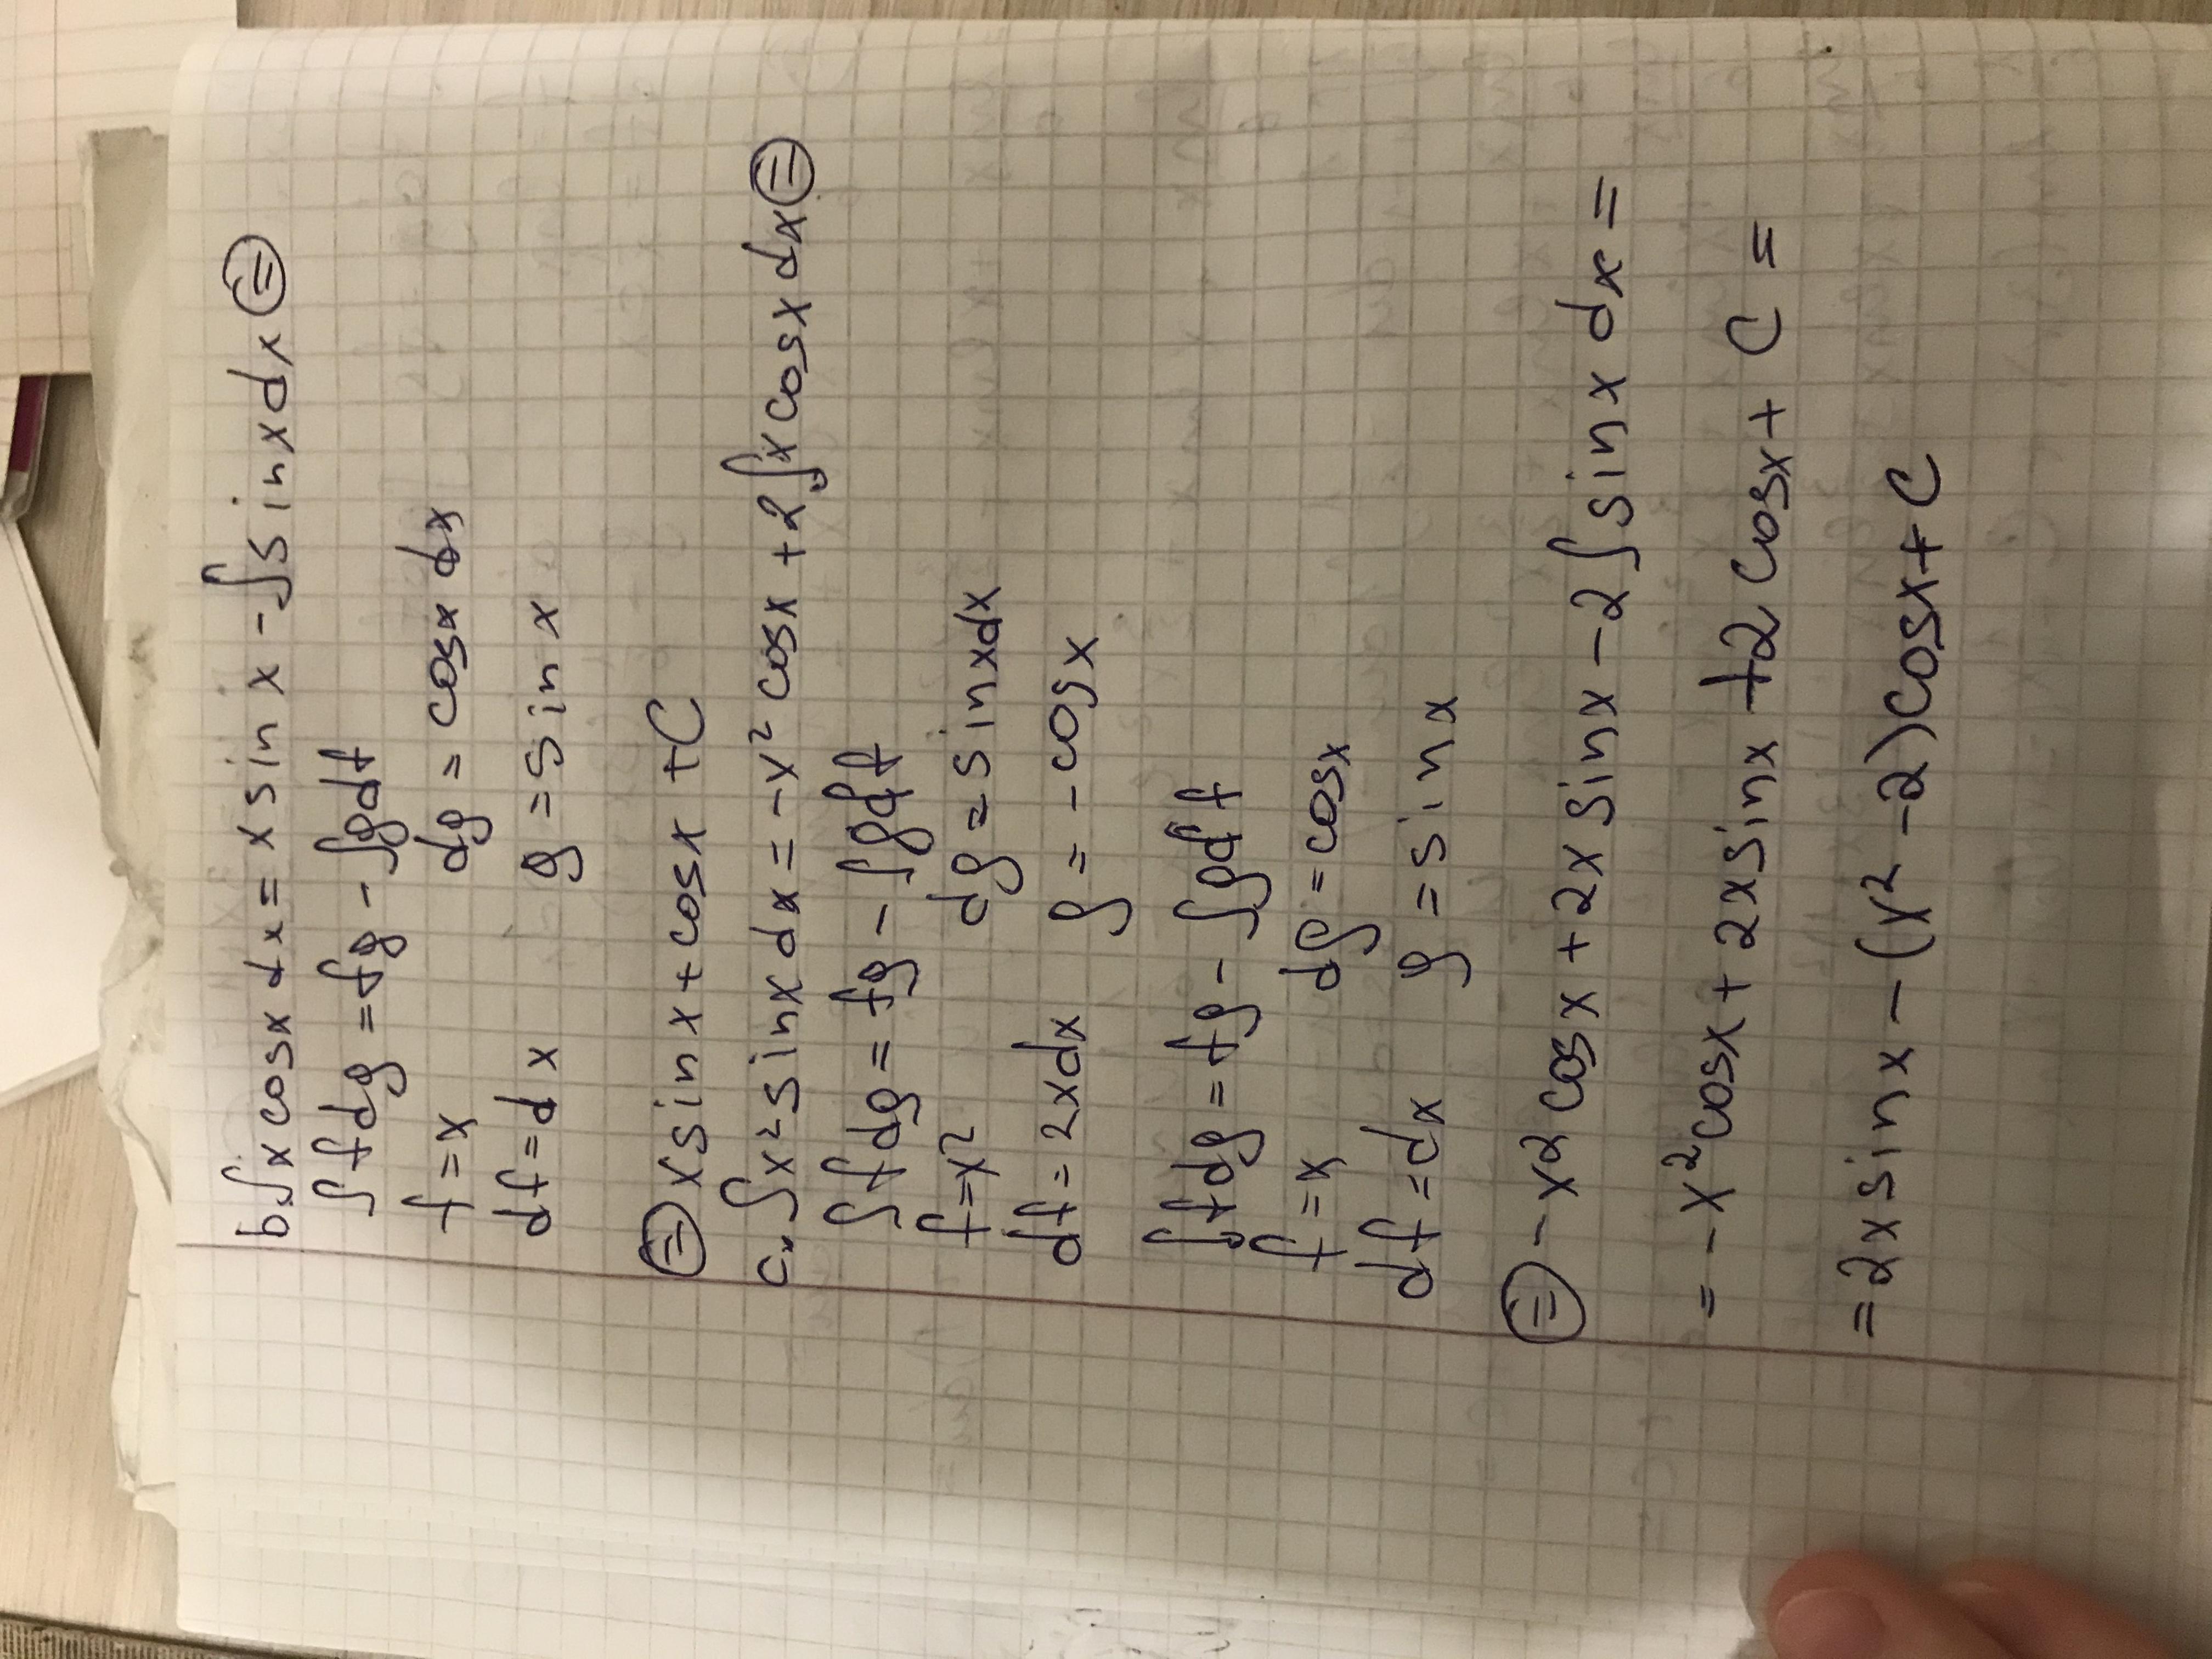 b. ∫x cosx dx = x sin x - ∫sinxdx ⊜
∫fdg = fg - ∫gdf
f = x dg = cosx dx
df = dx g = sin x
⊜ x sin x + cosx + C
c. ∫x² sinx dx = -x² cosx + 2∫x cosx dx ⊜
∫fdg = fg - ∫gdf
f = x² dg = sinxdx
df = 2xdx g = -cosx
∫fdg = fg - ∫gdf
f = x dg = cosx
df = dx g = sin x
⊜ - x2 cosx + 2x sinx - 2∫sinx dx =
= -x² cosx + 2x sinx + 2 cosx + C =
= 2x sinx - (x² - 2)cosx + C